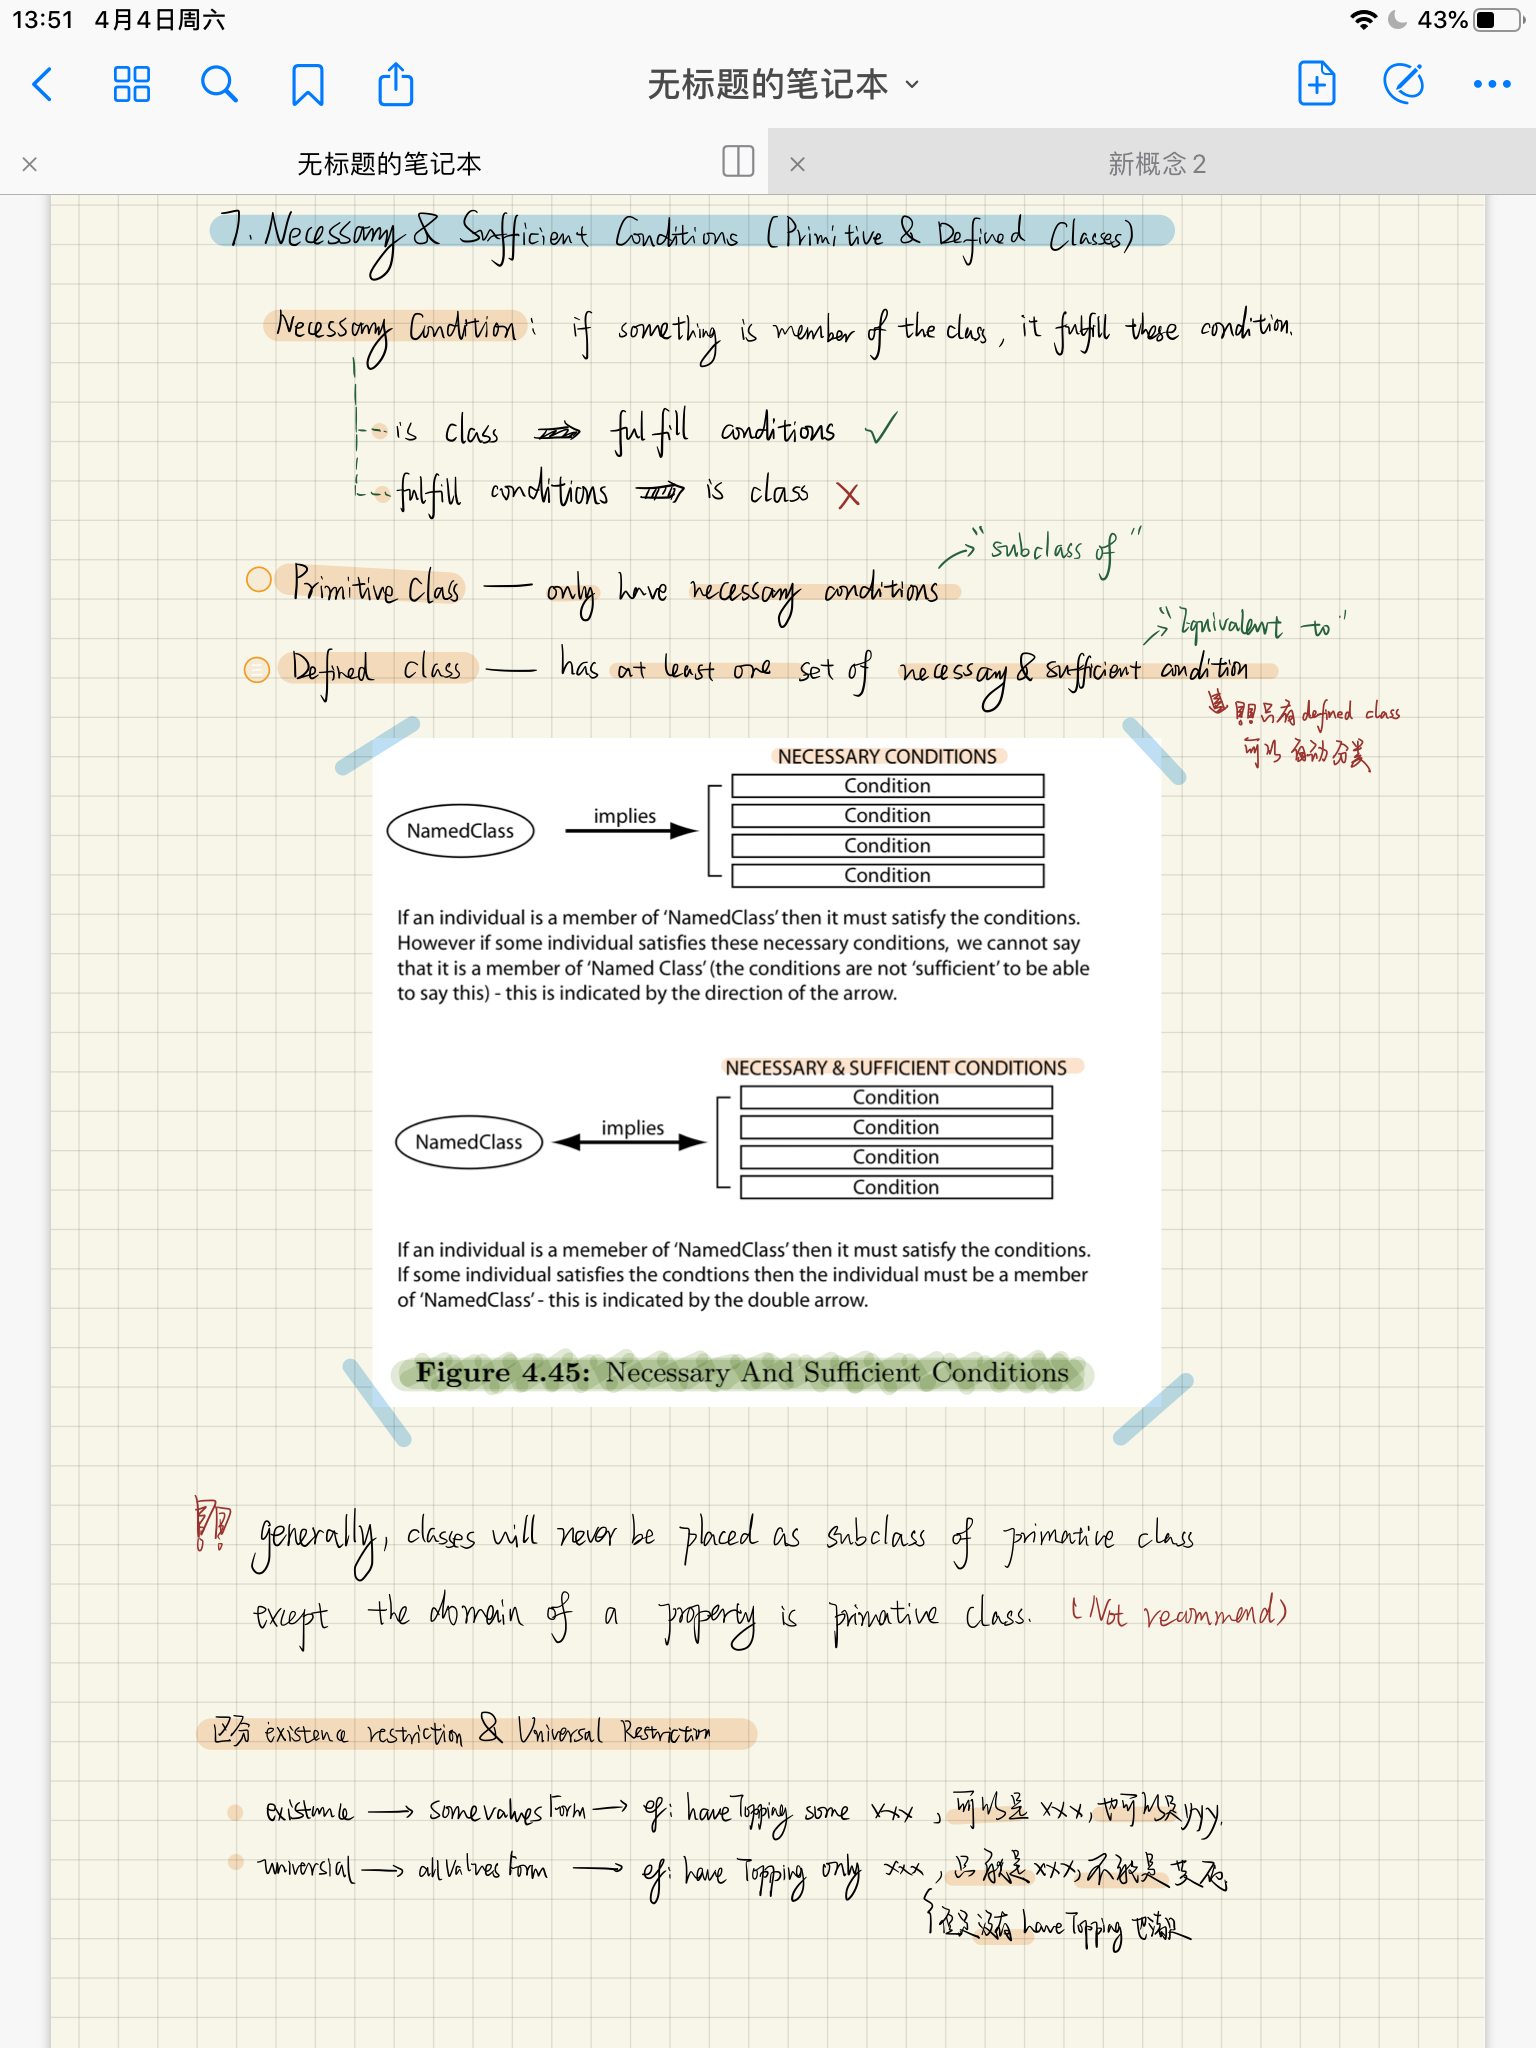 13:51 4月4日周六
43%
无标题的笔记本
无标题的笔记本
新概念 2
7. Necessary & Sufficient Conditions (Primitive & Defined Classes)
Necessary Condition: if something is member of the class, it fulfill these condition.
is class ⇒ fulfill conditions ✓
fulfill conditions ⇒ is class ✗
"subclass of"
Primitive Class — only have necessary conditions
"Equivalent to"
Defined class — has at least one set of necessary & sufficient condition
!!只有 defined class
可以自动分类
NECESSARY CONDITIONS
Condition
NamedClass implies Condition
Condition
Condition
If an individual is a member of 'NamedClass' then it must satisfy the conditions.
However if some individual satisfies these necessary conditions, we cannot say
that it is a member of 'Named Class' (the conditions are not 'sufficient' to be able
to say this) - this is indicated by the direction of the arrow.
NECESSARY & SUFFICIENT CONDITIONS
Condition
NamedClass implies Condition
Condition
Condition
If an individual is a memeber of 'NamedClass' then it must satisfy the conditions.
If some individual satisfies the condtions then the individual must be a member
of 'NamedClass' - this is indicated by the double arrow.
Figure 4.45: Necessary And Sufficient Conditions
!! generally, classes will never be placed as subclass of primative class
except the domain of a property is primative class. (Not recommend)
区分 existence restriction & Universal Restriction
existance → somevaluesForm → eg: haveTopping some xxx, 可以是 xxx, 也可以是yyy.
universial → allvaluesForm → eg: have Topping only xxx, 只能是xxx, 不能是其他
但是没有 haveTopping 也满足